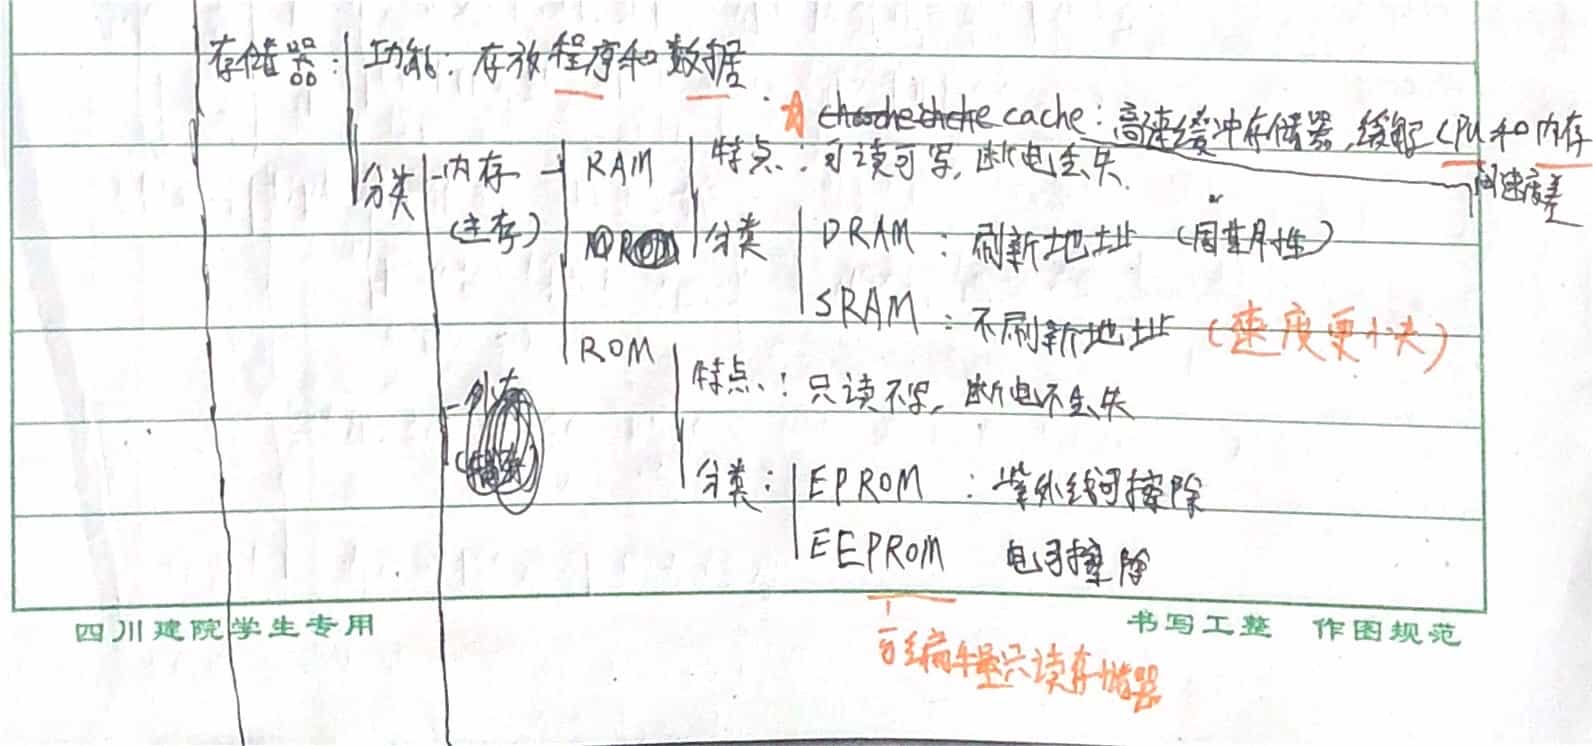 存储器: 功能: 存放程序和数据.
cache: 高速缓冲存储器, 缓解CPU和内存
间速度差
分类 内存 RAM 特点: 可读可写, 断电丢失.
(主存) 分类 DRAM: 刷新地址 (周期性)
SRAM: 不刷新地址 (速度更快)
ROM 特点: 只读不写, 断电不丢失
外存
分类: EPROM: 紫外线可擦除
EEPROM 电可擦除
四川建院学生专用 书写工整 作图规范
可编程只读存储器